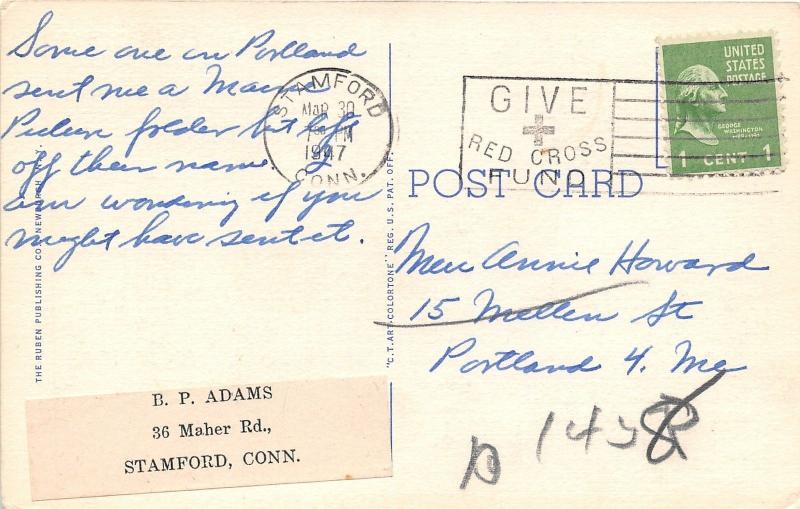 Some one in Portland
sent me a Maine
Picture folder but left
off their name. I
am wondering if you
might have sent it.
THE RUBEN PUBLISHING CO., NEWBURGH, N.Y.
B. P. ADAMS
36 Maher Rd.,
STAMFORD, CONN.
"C.T. ART-COLORTONE" REG. U.S. PAT. OFF.
STAMFORD
MAR 30
PM
1947
CONN.
GIVE
RED CROSS
FUND
UNITED
STATES
POSTAGE
GEORGE
WASHINGTON
1 CENT 1
POST CARD
Annie Howard
15 Mellen St
Portland 4. Me